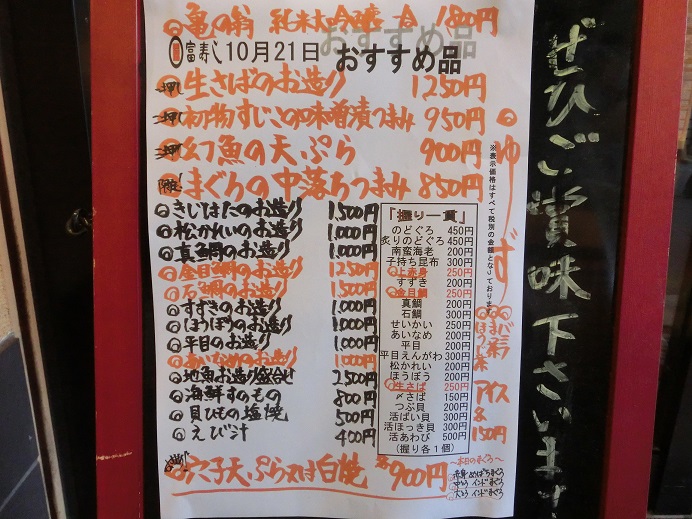 亀の翁 純米大吟醸 一合 1800円
富寿し10月21日
おすすめ品
生さばのお造り 1250円
初物すじこの味噌漬つまみ 950円
幻魚の天ぷら 900円
まぐろの中落ちつまみ 850円
きじはたのお造り 1,500円
松かれいのお造り 1,000円
真鯛のお造り 1,000円
金目鯛のお造り 1250円
石鯛のお造り 1,500円
すずきのお造り 1000円
ほうぼうのお造り 1000円
平目のお造り 1,000円
あいなめのお造り 1000円
地魚お造り盛合せ 2500円
海鮮すのもの 800円
貝ひもの塩焼 500円
えび汁 400円
穴子天ぷら又は白焼 各900円
『握り一貫』
のどぐろ 450円
炙りのどぐろ 450円
南蛮海老 200円
子持ち昆布 300円
上赤身 250円
すずき 200円
金目鯛 250円
真鯛 200円
石鯛 300円
せいかい 250円
あいなめ 200円
平目 200円
平目えんがわ 300円
松かれい 200円
ほうぼう 200円
生さば 250円
〆さば 150円
つぶ貝 200円
活ばい貝 300円
活ほっき貝 300円
活あわび 500円
(握り各1個)
※表示価格はすべて税別の金額となっております
ゆず
ほうじ茶
アイス
各150円
~本日のまぐろ~
赤身 めばちまぐろ
中とろ インドまぐろ
大とろ インドまぐろ
ぜひご賞味下さいませ